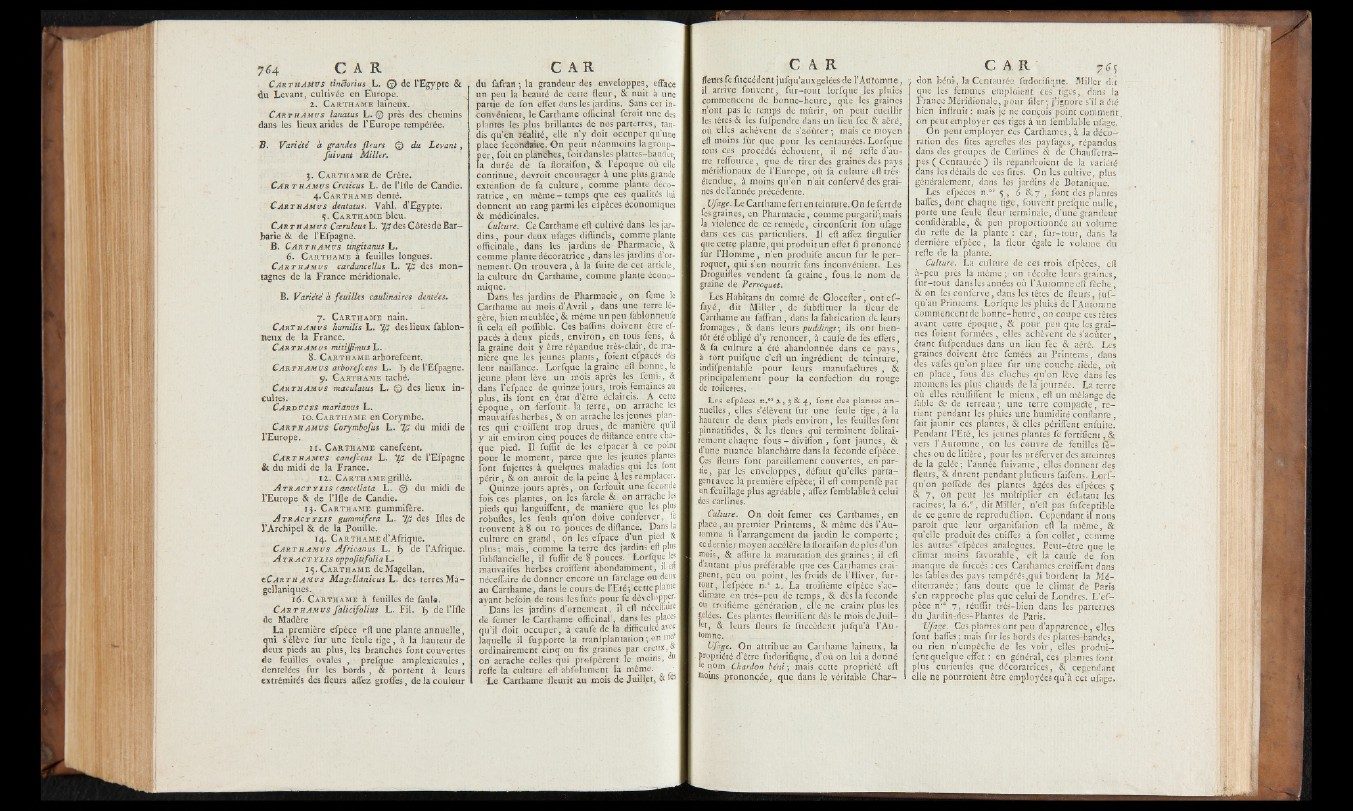 764 C A R
CARTHAMUS tinctorius L. ☉ de l'Egypte &
du Levant, cultivée en Europe.
2. CARTHAME laineux.
CARTHAMUS lanatus L. ☉ près des chemins
dans les lieux arides de l'Europe tempérée.
B. Variété à grandes fleurs ☉ du Levant,
ſuivant Miller.
3. CARTHAME de Crète.
CARTHAMUS Creticus L. de l'Iſle de Candie.
4. CARTHAME denté.
CARTHAMUS dentatus. Vahl. d'Egypte.
5. CARTHAME bleu.
CARTHAMUS Cœruleus L. ♃ des Côtes de Bar-
barie & de l'Eſpagne.
B. CARTHAMUS tingitanus L.
6. CARTHAME à feuilles longues.
CARTHAMUS carduncellus L. ♃ des mon-
tagnes de la France méridionale.
B. Variété à feuilles caulinaires dentées.
7. CARTHAME nain.
CARTHAMUS humilis L. ♃ des lieux ſablon-
neux de la France.
CARTHAMUS mitiſſimus L.
8. CARTHAME arboreſcent.
CARTHAMUS arboreſcens L. ♄ de l'Eſpagne.
9. CARTHAME taché.
CARTHAMUS maculatus L. ☉ des lieux in-
cultes.
CARDUUS marianus L.
10. CARTHAME en Corymbe.
CARTHAMUS Corymboſus L. ♃ du midi de
l'Europe.
11. CARTHAME caneſcent.
CARTHAMUS caneſcens L. ♃ de l'Eſpagne
& du midi de la France.
12. CARTHAME grillé.
ATRACTYLIS cancellata L. ☉ du midi de
l'Europe & de l'Iſle de Candie.
13. CARTHAME gummifère.
ATRACTYLIS gummifera L. ♃ des Iſles de
l'Archipel & de la Pouille.
14. CARTHAME d'Afrique.
CARTHAMUS Africanus L. ♄ de l'Afrique.
ATRACTYLIS oppoſitifolia L.
15. CARTHAME de Magellan.
CARTHAMUS Magellanicus L. des terres Ma-
gellaniques.
16. CARTHAME à feuilles de ſaule.
CARTHAMUS ſalicifolius L. Fil. ♄ de l'Iſle
de Madère
La première eſpèce eſt une plante annuelle,
qui s'élève ſur une ſeule tige, à la hauteur de
deux pieds au plus, les branches ſont couvertes
de feuilles ovales, preſque amplexicaules,
dentelées ſur les bords, & portent à leurs
extrémités des fleurs aſſez groſſes, de la couleur
C A R
du ſafran; la grandeur des enveloppes, efface
un peu la beauté de cette fleur, & nuit à une
partie de ſon effet dans les jardins. Sans cet in-
convénient, le Carthame officinal ſeroit une des
plantes les plus brillantes de nos parterres, tan-
dis qu'en réalité, elle n'y doit occuper qu'une
place ſecondaire. On peut néanmoins la group-
per, ſoit en planches, ſoit dans les plattes-bandes;
la durée de ſa floraiſon, & l'époque où elle
continue, devroit encourager à une plus grande
extenſion de ſa culture, comme plante déco-
ratrice, en même-temps que ces qualités lui
donnent un rang parmi les eſpèces économiques
& médicinales.
Culture. Ce Carthame eſt cultivé dans les jar-
dins, pour deux uſages diſtincts, comme plante
officinale, dans les jardins de Pharmacie, &
comme plante décoratrice, dans les jardins d'or-
nement. On trouvera, à la ſuite de cet article,
la culture du Carthame, comme plante écono-
mique.
Dans les jardins de Pharmacie, on ſeme le
Carthame au mois d'Avril, dans une terre lé-
gère, bien meublée, & même un peu ſablonneuſe
ſi cela eſt poſſible. Ces baſſins doivent être eſ-
pacés à deux pieds, environ, en tous ſens, &
la graine doit y être répandue très-clair, de ma-
nière que les jeunes plants, ſoient eſpacés dès
leur naiſſance. Lorſque la graine eſt bonne, le
jeune plant lève un mois après les ſemis, &
dans l'eſpace de quinze jours, trois ſemaines au
plus, ils ſont en état d'être éclaircis. A cette
époque, on ſerfouit la terre, on arrache les
mauvaiſes herbes, & on arrache les jeunes plan-
tes qui croiſſent trop drues, de manière qu'il
y ait environ cinq pouces de diſtance entre cha-
que pied. Il ſuffit de les eſpacer à ce point
pour le moment, parce que les jeunes plantes
ſont ſujettes à quelques maladies qui les font
périr, & on auroit de la peine à les remplacer.
Quinze jours après, on ſerfouit une ſeconde
fois ces plantes, on les ſarcle & on arrache les
pieds qui languiſſent, de manière que les plus
robuſtes, les ſeuls qu'on doive conſerver, ſe
trouvent à 8 ou 10 pouces de diſtance. Dans la
culture en grand, on les eſpace d'un pied &
plus; mais, comme la terre des jardins eſt plus
ſubſtancielle, il ſuffit de 8 pouces. Lorſque les
mauvaiſes herbes croiſſent abondamment, il eſt
néceſſaire de donner encore un ſarclage ou deux
au Carthame, dans le cours de l'Eté; cette plante
ayant beſoin de tous les ſucs pour ſe développer.
Dans les jardins d'ornement, il eſt néceſſaire
de ſemer le Carthame officinal, dans les places
qu'il doit occuper, à cauſe de la difficulté avec
laquelle il ſupporte la tranſplantation; on met
ordinairement cinq ou ſix graines par creux, &
on arrache celles qui proſpèrent le moins, du
reſte la culture eſt abſolument la même.
Le Carthame fleurit au mois de Juillet, & ſes
C A R
fleurs ſe ſuccédent juſqu'aux gelées de l'Automne,
il arrive ſouvent, ſur-tout lorſque les pluies
commencent de bonne-heure, que les graines
n'ont pas le temps de mûrir, on peut cueillir
les têtes & les ſuſpendre dans un lieu ſec & aéré,
où elles achèvent de s'aoûter; mais ce moyen
eſt moins ſûr que pour les centaurées. Lorſque
tous ces procédés échouent, il ne reſte d'au-
tre reſſource, que de tirer des graines des pays
méridionaux de l'Europe, où ſa culture eſt très-
étendue, à moins qu'on n'ait conſervé des grai-
nes de l'année précédente.
Uſage. Le Carthame ſert en teinture. On ſe ſert de
ſes graines, en Pharmacie, comme purgatif; mais
la violence de ce remède, circonſcrit ſon uſage
dans ces cas particuliers. Il eſt aſſez ſingulier
que cette plante, qui produit un effet ſi prononcé
ſur l'Homme, n'en produiſe aucun ſur le per-
roquet, qui s'en nourrit ſans inconvénient. Les
Droguiſtes vendent ſa graine, ſous le nom de
graine de Perroquet.
Les Habitans du comté de Gloceſter, ont eſ-
ſayé, dit Miller, de ſubſtituer la fleur de
Carthame au ſaffran, dans la fabrication de leurs
fromages, & dans leurs puddings; ils ont bien-
tôt été obligé d'y renoncer, à cauſe de ſes effets,
& ſa culture a été abandonnée dans ce pays,
à tort puiſque c'eſt un ingrédient de teinture,
indiſpenſable pour leurs manufactures, &
principalement pour la confection du rouge
de toilettes.
Les eſpèces n.os 2, 3 & 4, ſont des plantes an-
nuelles, elles s'élèvent ſur une ſeule tige, à la
hauteur de deux pieds environ, les feuilles ſont
pinnatifides, & les fleurs qui terminent ſolitai-
rement chaque ſous-diviſion, ſont jaunes, &
d'une nuance blanchâtre dans la ſeconde eſpèce.
Ces fleurs ſont pareillement couvertes, en par-
tie, par les enveloppes, défaut qu'elles parta-
gent avec la première eſpèce; il eſt compenſé par
un feuillage plus agréable, aſſez ſemblable à celui
des carlines.
Culture. On doit ſemer ces Carthames, en
place, au premier Printems, & même dès l'Au-
tomne ſi l'arrangement du jardin le comporte;
ce dernier moyen accélère la floraiſon de plus d'on
mois, & aſſure la maturation des graines; il eſt
d'autant plus préférable que ces Carthames crai-
gnent, peu ou point, les froids de l'Hiver, ſur-
tout, l'eſpèce n.° 2. La troiſième eſpèce s'ac-
climate en très-peu de temps, & dès la ſeconde
ou troiſième génération, elle ne craint plus les
gelées. Ces plantes fleuriſſent dès le mois de Juil-
let, & leurs fleurs ſe ſuccèdent juſqu'à l'Au-
tomne.
Uſage. On attribue au Carthame laineux, la
propriété d'être ſudorifique, d'où on lui a donné
le nom Chardon béni; mais cette propriété eſt
moins prononcée, que dans le véritable Char-
C A R 765
don béni, la Centaurée ſudorifique. Miller dit
que les femmes emploient ces tiges, dans la
France Méridionale, pour filer; j'ignore s'il a été
bien inſtruit; mais je ne conçois point comment
on peut employer ces tiges à un ſemblable uſage.
On peut employer ces Carthames, à la déco-
ration des ſites agreſtes des payſages, répandus
dans des groupes de Carlines & de Chauſſetra-
pes ( Centaurée ) ils répandroient de la variété
dans les détails de ces ſites. On les cultive, plus
généralement, dans les jardins de Botanique.
Les eſpèces n.os 5, 6 & 7, ſont des plantes
baſſes, dont chaque tige, ſouvent preſque nulle,
porte une ſeule fleur terminale, d'une grandeur
conſidérable, & peu proportionnée au volume
du reſte de la plante: car, ſur-tout, dans la
dernière eſpèce, la fleur égale le volume du
reſte de la plante.
Culture. La culture de ces trois eſpèces, eſt
à-peu près la même; on récolte leurs graines,
ſur-tout dans les années où l'Automne eſt ſèche,
& on les conſerve, dans les têtes de fleurs, juſ-
qu'au Printems. Lorſque les pluies de l'Automne
commencent de bonne-heure, on coupe ces têtes
avant cette époque, & pour peu que les grai-
nes ſoient formées, elles achèvent de s'aoûter,
étant ſuſpendues dans un lieu ſec & aéré. Les
graines doivent être ſemées au Printems, dans
des vaſes qu'on place ſur une couche tiède, où
en place, ſous des cloches qu'on lève dans les
momens les plus chauds de la journée. La terre
où elles réuſſiſſent le mieux, eſt un mélange de
ſable & de terreau; une terre compacte, re-
tient pendant les pluies une humidité conſtante,
fait jaunir ces plantes, & elles périſſent enſuite.
Pendant l'Eté, les jeunes plantes ſe fortifient, &
vers l'Automne, on les couvre de feuilles ſè-
ches ou de litière, pour les préſerver des atteintes
de la gelée; l'année ſuivante, elles donnent des
fleurs, & durent pendant pluſieurs ſaiſons. Lorſ-
qu'on poſſède des plantes âgées des eſpèces 5
& 7, on peut les multiplier en éclatant les
racines; la 6.e, dit Miller, n'eſt pas ſuſceptible
de ce genre de reproduction. Cependant il nous
paroît que leur organiſation eſt la même, &
qu'elle produit des cuiſſes à ſon collet, comme
les autres eſpèces analogues. Peut-être que le
climat moins favorable, eſt la cauſe de ſon
manque de ſuccès: ces Carthames croiſſent dans
les ſables des pays tempérés, qui bordent la Mé-
diterranée; ſans doute que le climat de Paris
s'en rapproche plus que celui de Londres. L'eſ-
pèce n.° 7, réuſſit très-bien dans les parterres
du Jardin-des-Plantes de Paris.
Uſage. Ces plantes ont peu d'apparence, elles
ſont baſſes; mais ſur les bords des plattes-bandes,
où rien n'empêche de les voir, elles produi-
ſent quelque effet: en général, ces plantes ſont
plus curieuſes que décoratrices, & cependant
elle ne pourroient être employées qu'à cet uſage.